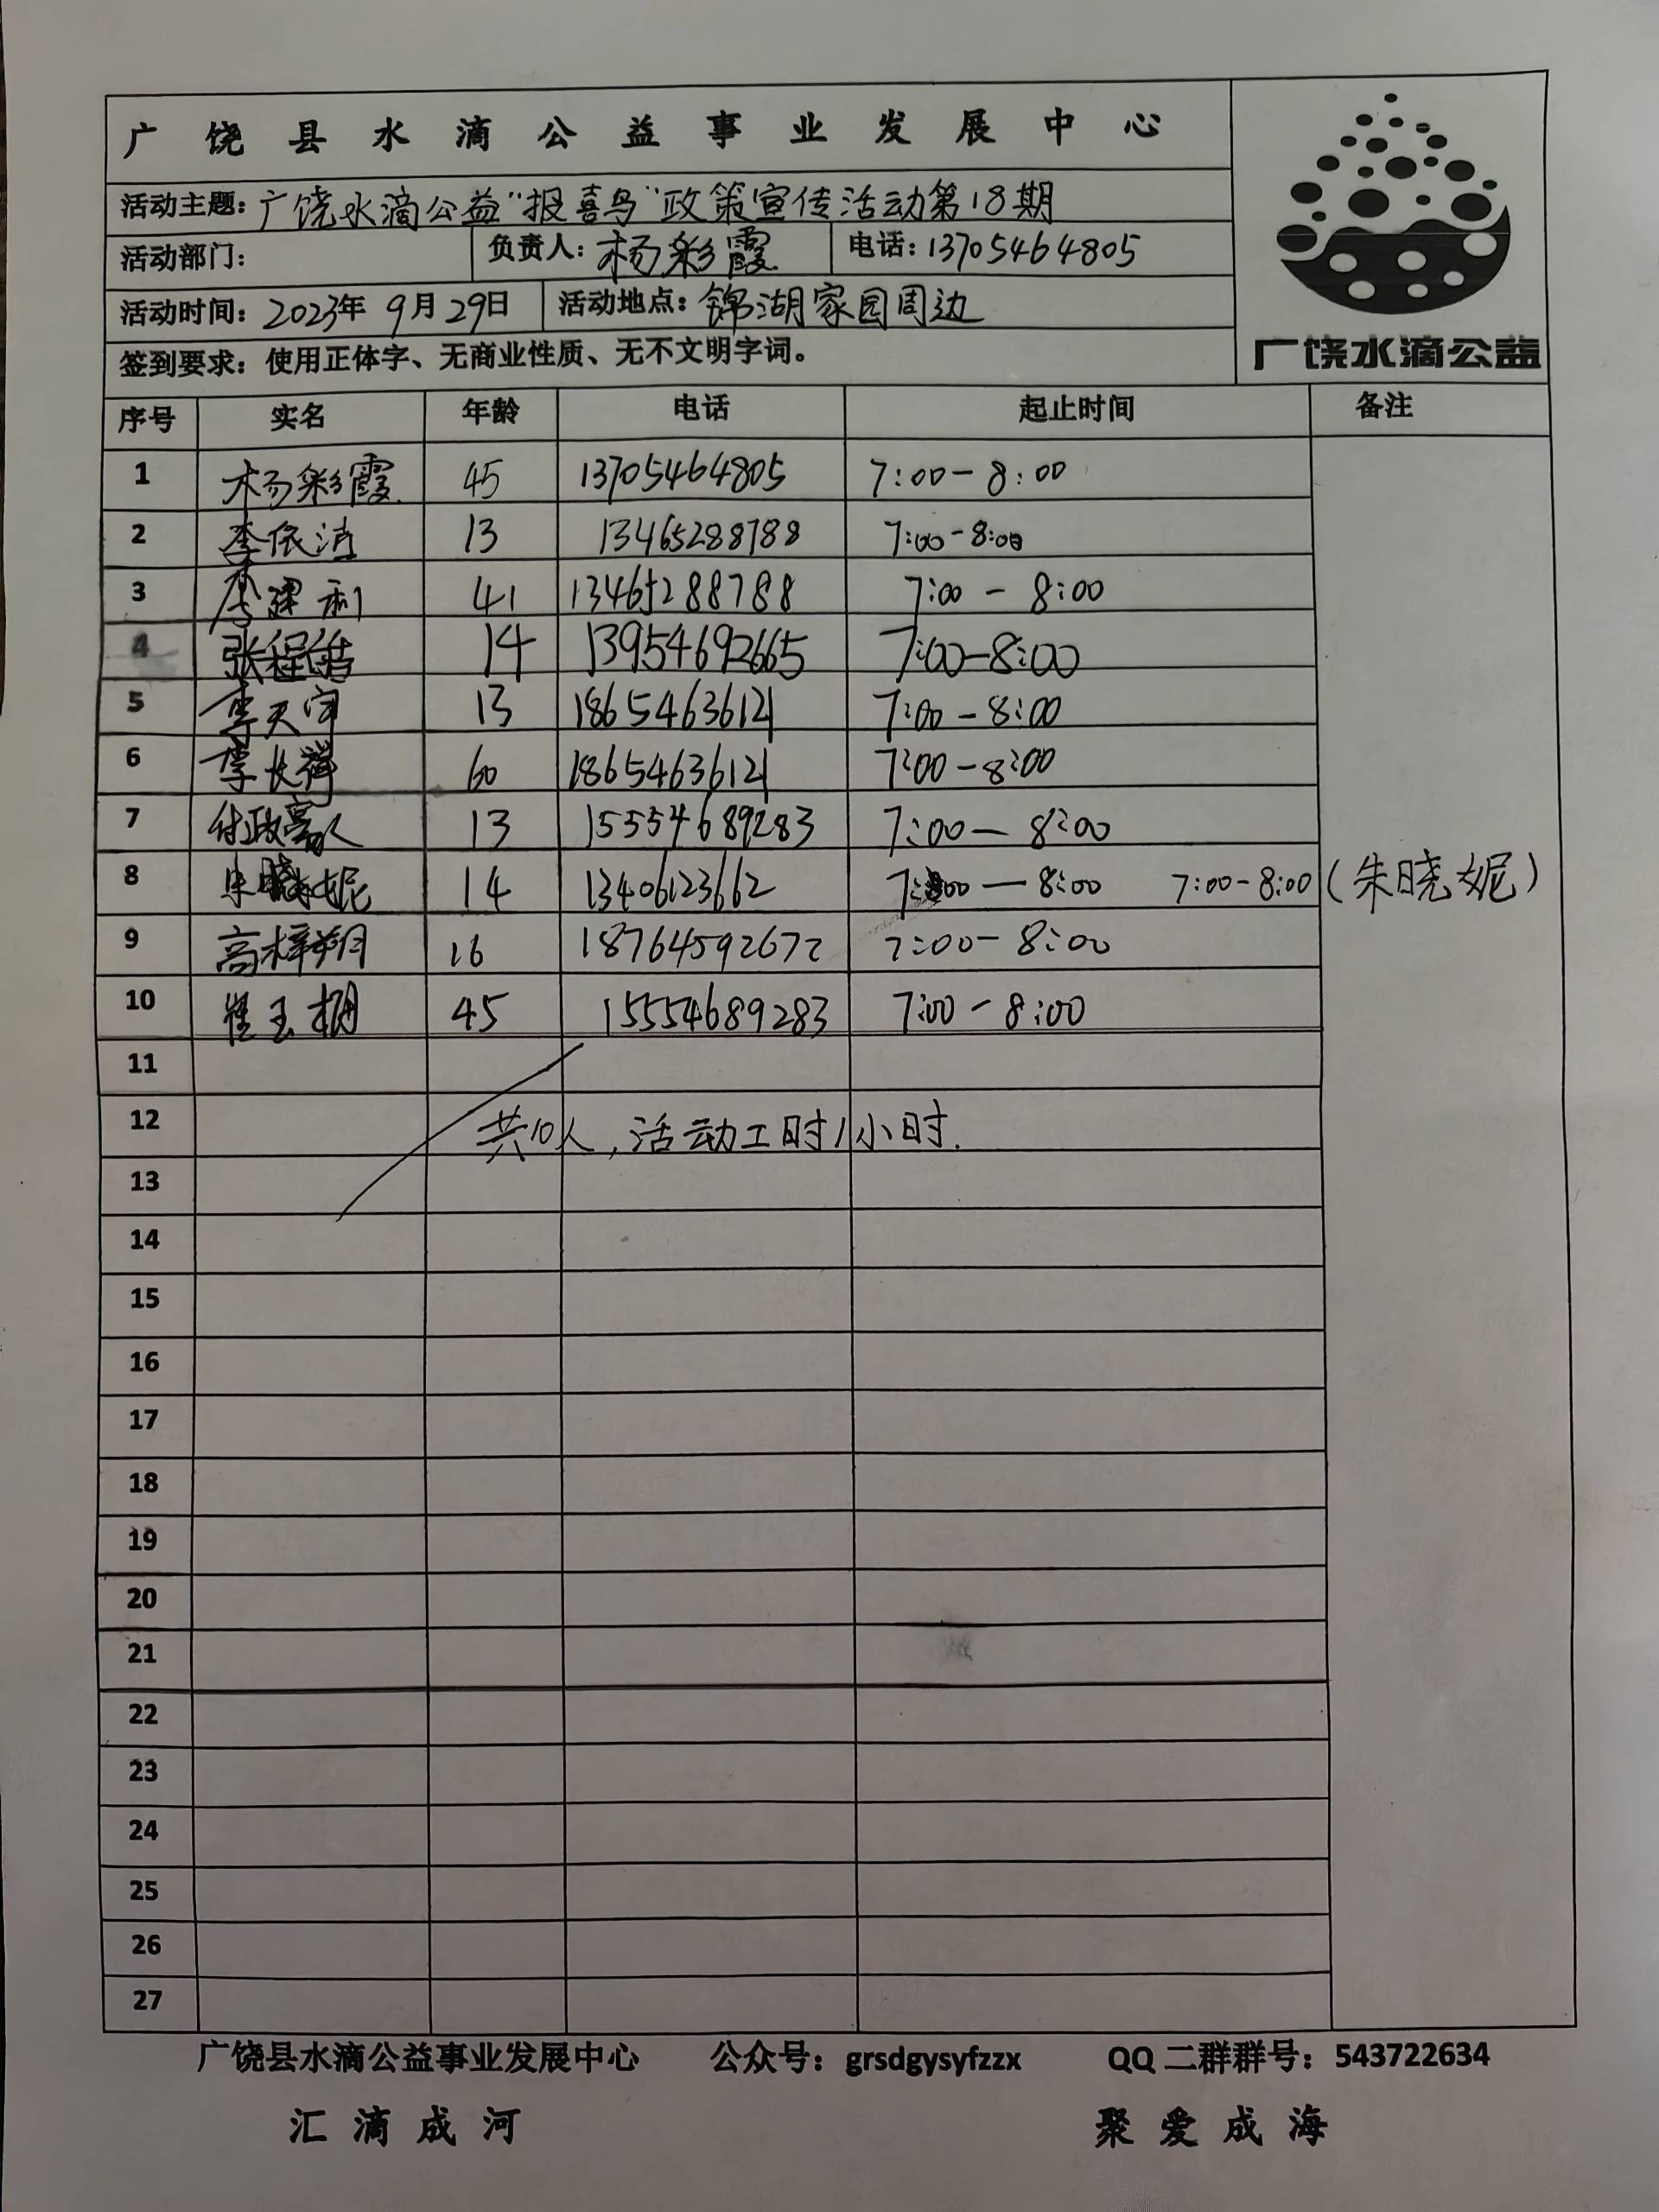 广饶县水滴公益事业发展中心
活动主题：广饶水滴公益"报喜鸟"政策宣传活动第18期
活动部门： 负责人：杨彩霞 电话：13705464805
活动时间：2023年9月29日 活动地点：锦湖家园周边
签到要求：使用正体字、无商业性质、无不文明字词。
广饶水滴公益
序号 实名 年龄 电话 起止时间 备注
1 杨彩霞 45 13705464805 7:00-8:00
2 李依洁 13 13465288788 7:00-8:00
3 李建利 41 13465288788 7:00-8:00
4 张程皓 14 13954692665 7:00-8:00
5 李天宇 13 18654636121 7:00-8:00
6 李长祥 60 18654636121 7:00-8:00
7 付政豪 13 15554689283 7:00-8:00
8 朱晓妮 14 13406123662 7:00-8:00 7:00-8:00 (朱晓妮)
9 高梓翔 16 18764592672 7:00-8:00
10 崔玉 45 15554689283 7:00-8:00
11
12 共10人，活动工时1小时.
13
14
15
16
17
18
19
20
21
22
23
24
25
26
27
广饶县水滴公益事业发展中心 公众号：grsdgysyfzzx QQ二群群号：543722634
汇滴成河 聚爱成海